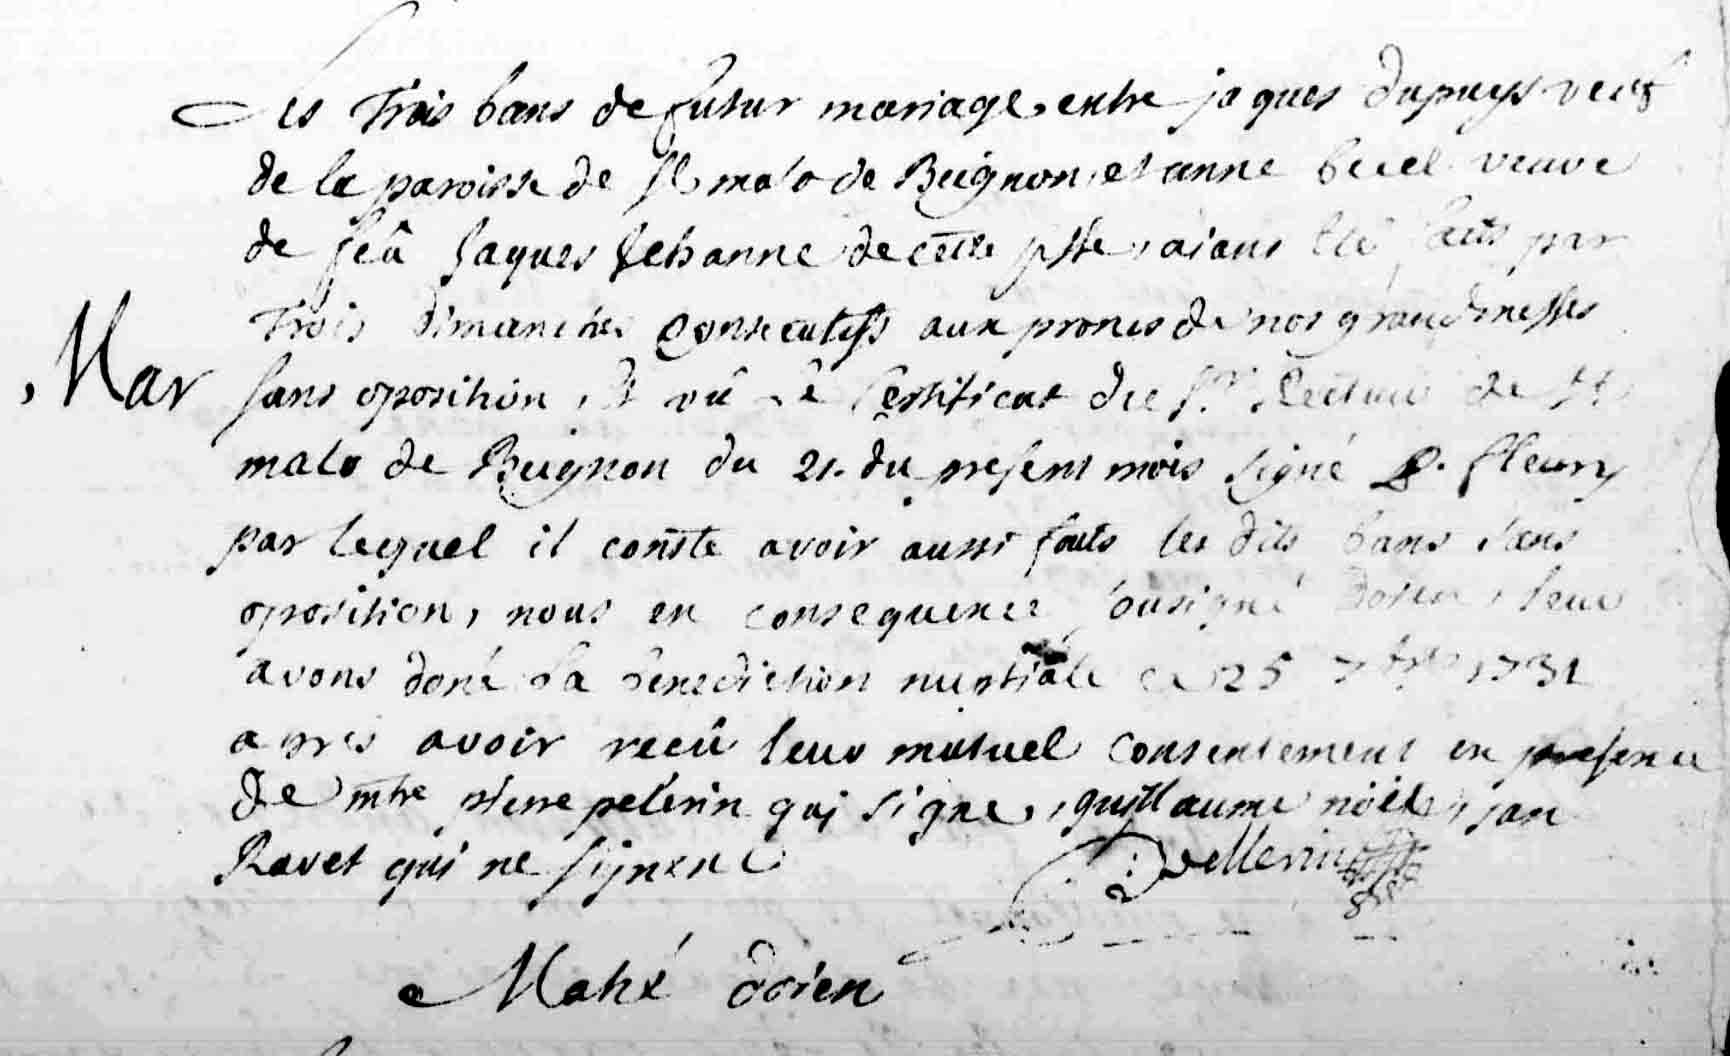 Les Trois bans de futur mariage entre jaques dupuys veuf
de la paroisse de St malo de Beignon et anne becel veuve
de feû Jaques Jehanne de cette psse, aians été faits par
Trois dimanches Consecutifs aux prones de nos grandmesses
Mar
sans oposition, Et vû le Certificat du Sr. Recteur de St
malo de Beignon du 21. du present mois signé P. fleury
par lequel il conste avoir aussi faits les dits bans sans
oposition, nous en consequence sousigné doien, leur
avons doné la benediction nuptiale ce 25 7bre 1731
apres avoir recû leur mutuel consentement en presence
de mtre pierre pelerin qui signe, guillaume nöel, jan
Ravet qui ne signent
Pellerin
Mahé doien